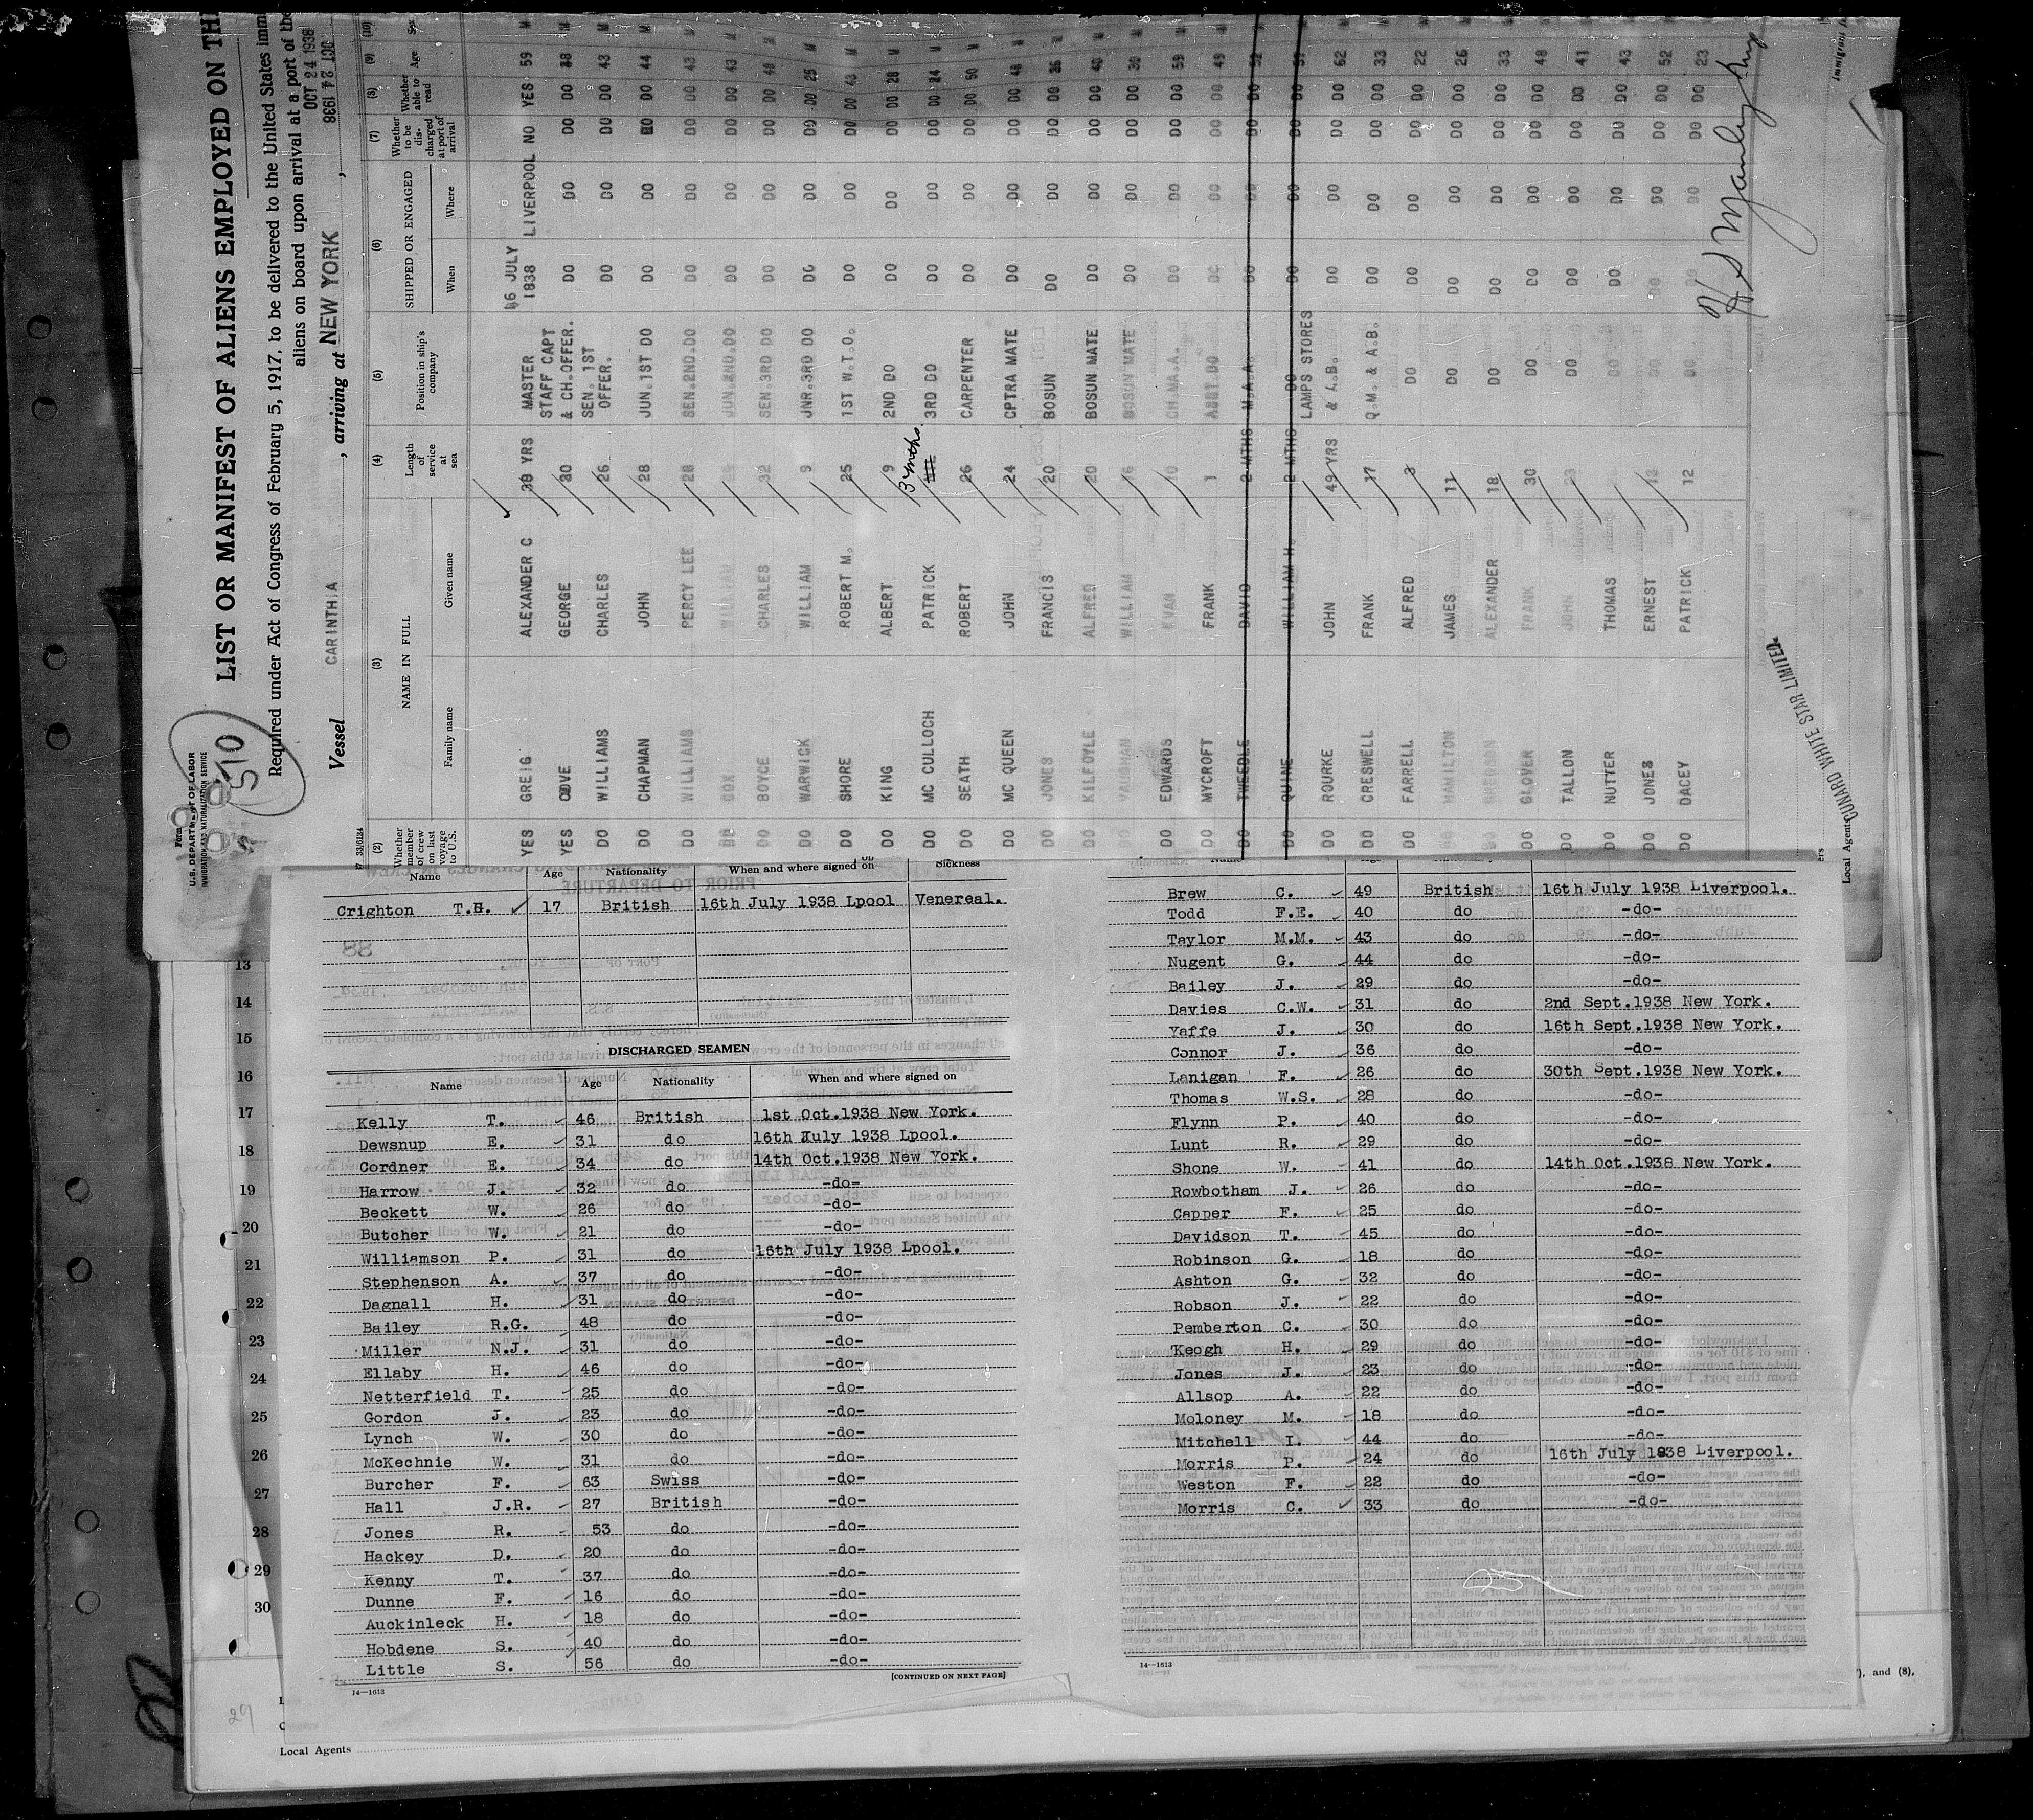 Form
U.S. DEPARTMENT OF LABOR
IMMIGRATION AND NATURALIZATION SERVICE
510
LIST OR MANIFEST OF ALIENS EMPLOYED ON TH
Required under Act of Congress of February 5, 1917, to be delivered to the United States imm
aliens on board upon arrival at a port of the
Vessel CARINTHIA , arriving at NEW YORK , OCT 24 1938
OCT 24 1938
(2) (3) (4) (5) (6) (7) (8) (9) (10)
Whether member of crew on last voyage to U.S. NAME IN FULL Family name Given name Length of service at sea Position in ship's company SHIPPED OR ENGAGED When Where Whether to be discharged at port of arrival Whether able to read Age Sex
YES GREIG ALEXANDER C 39 YRS MASTER 16 JULY 1838 LIVERPOOL NO YES 59 M
YES GEORGE 30 STAFF CAPT & CH.OFFER. DO DO DO DO 38 M
DO WILLIAMS CHARLES 26 SEN. 1ST OFFER. DO DO DO DO 43 M
DO CHAPMAN JOHN 28 JUN.1ST DO DO DO DO DO 44 M
DO WILLIAMS PERCY LEE 28 SEN.2ND.DO DO DO DO DO 43 M
DO COX WILLIAM JUN.2ND.DO DO DO DO DO 43 M
DO BOYCE CHARLES 32 SEN.3RD DO DO DO DO DO 48 M
DO WARWICK WILLIAM 9 JNR.3RD DO DO DO DO DO 25 M
DO SHORE ROBERT M. 25 1ST W.T.O. DO DO DO DO 43 M
DO KING ALBERT 9 2ND DO DO DO DO DO 28 M
DO MC CULLOCH PATRICK 3 mths. 3RD DO DO DO DO DO 24 M
DO SEATH ROBERT 26 CARPENTER DO DO DO DO 50 M
DO MC QUEEN JOHN 24 CPTRA MATE DO DO DO DO 48 M
DO JONES FRANCIS 20 BOSUN DO DO DO DO 36 M
DO KILFOYLE ALFRED 20 BOSUN MATE DO DO DO DO 40 M
DO VAUGHAN WILLIAM 16 BOSUN MATE DO DO DO DO 30 M
DO EDWARDS EVAN 10 CH.M.A.A. DO DO DO DO 59 M
DO MYCROFT FRANK 1 ASST DO DO DO DO DO 49 M
DO TWEEDLE DAVID 2 MTHS M.A.A. DO DO DO DO 52
DO QUINE WILLIAM H. 2 MTHS DO DO DO DO DO
DO ROURKE JOHN 49 YRS LAMPS STORES & A.B. DO DO DO DO 62
DO CRESWELL FRANK 17 Q.M. & A.B. DO DO DO DO 33
DO FARRELL ALFRED 3 DO DO DO DO DO 22
DO HAMILTON JAMES 11 DO DO DO DO DO 26
DO ALEXANDER 18 DO DO DO DO DO 33
DO GLOVER FRANK 30 DO DO DO DO DO 48
DO TALLON JOHN 23 DO DO DO DO DO 41
DO NUTTER THOMAS DO DO DO DO DO 43
DO JONES ERNEST 13 DO DO DO DO DO 52
DO DACEY PATRICK 12 DO DO DO DO DO 23
CUNARD WHITE STAR LIMITED.
Local Agents
Immigrant
Name Age Nationality When and where signed on Sickness
Crighton T.H. 17 British 16th July 1938 Lpool Venereal.
DISCHARGED SEAMEN
Name Age Nationality When and where signed on
Kelly T. 46 British 1st Oct.1938 New York.
Dewsnup E. 31 do 16th July 1938 Lpool.
Cordner E. 34 do 14th Oct.1938 New York.
Harrow J. 32 do -do-
Beckett W. 26 do -do-
Butcher W. 21 do -do-
Williamson P. 31 do 16th July 1938 Lpool.
Stephenson A. 37 do -do-
Dagnall H. 31 do -do-
Bailey R.G. 48 do -do-
Miller N.J. 31 do -do-
Ellaby H. 46 do -do-
Netterfield T. 25 do -do-
Gordon J. 23 do -do-
Lynch W. 30 do -do-
McKechnie W. 31 do -do-
Burcher F. 63 Swiss -do-
Hall J.R. 27 British -do-
Jones R. 53 do -do-
Hackey D. 20 do -do-
Kenny T. 37 do -do-
Dunne F. 16 do -do-
Auckinleck H. 18 do -do-
Hobdene S. 40 do -do-
Little S. 56 do -do-
[CONTINUED ON NEXT PAGE]
14—1613
Brew C. 49 British 16th July 1938 Liverpool.
Todd F.E. 40 do -do-
Taylor M.M. 43 do -do-
Nugent G. 44 do -do-
Bailey J. 29 do -do-
Davies C.W. 31 do 2nd Sept.1938 New York.
Yaffe J. 30 do 16th Sept.1938 New York.
Connor J. 36 do -do-
Lanigan F. 26 do 30th Sept.1938 New York.
Thomas W.S. 28 do -do-
Flynn P. 40 do -do-
Lunt R. 29 do -do-
Shone W. 41 do 14th Oct.1938 New York.
Rowbotham J. 26 do -do-
Capper F. 25 do -do-
Davidson T. 45 do -do-
Robinson G. 18 do -do-
Ashton G. 32 do -do-
Robson J. 22 do -do-
Pemberton C. 30 do -do-
Keogh H. 29 do -do-
Jones J. 23 do -do-
Allsop A. 22 do -do-
Moloney M. 18 do -do-
Mitchell I. 44 do -do-
Morris P. 24 do 16th July 1938 Liverpool.
Weston F. 22 do -do-
Morris C. 33 do -do-
14—1613
13
14
15
16
17
18
19
20
21
22
23
24
25
26
27
28
29
30
), and (8),
29
Local Agents